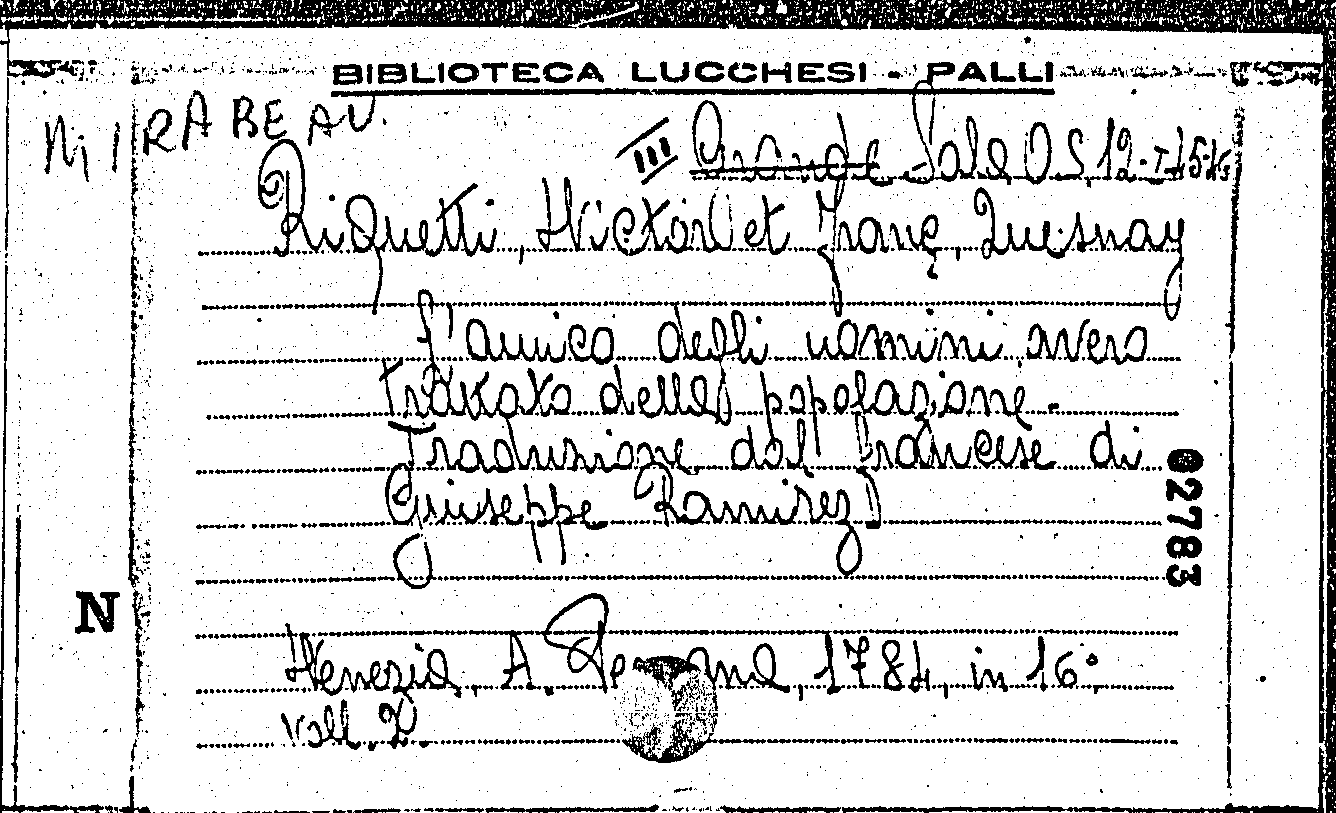 BIBLIOTECA LUCCHESI - PALLI
MIRABEAU.
III Grande Sala O.S. 12.
Riquetti, Victor et Franç. Quesnay
L'amico degli uomini ovvero
trattato della popolazione.
Traduzione dal francese di
Giuseppe Ramirez
02783
N
Venezia, A. 1784, in 16°.
Voll. 2.